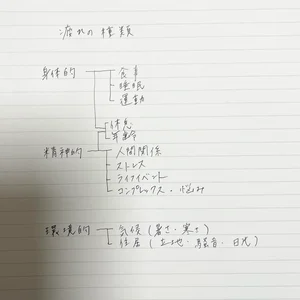 疲れの種類
身体的 食事
睡眠
運動
休息
年齢
精神的 人間関係
ストレス
ライフイベント
コンプレックス・悩み
環境的 気候(暑さ・寒さ)
住居(立地・騒音・日光)